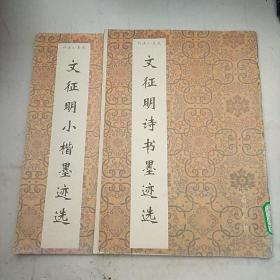 文征明小楷墨迹选
文征明诗书墨迹选